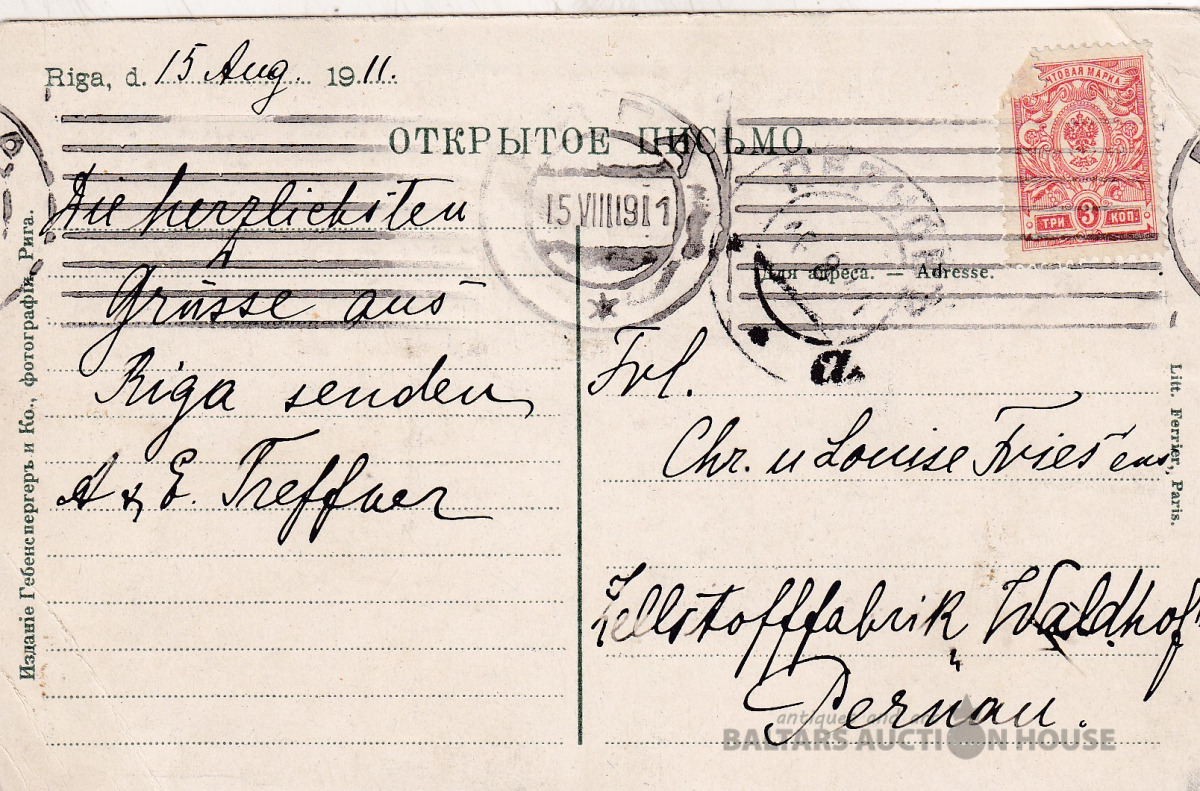 Riga, d. 15 Aug. 1911.
ОТКРЫТОЕ ПИСЬМО.
ПОЧТОВАЯ МАРКА
ТРИ 3 КОП.
15 VIII 1911
Для адреса. — Adresse.
Die herzlichsten
Grüsse aus
Riga senden
A & E. Treffner
Frl.
Chr. u Louise Friesen
Zellstofffabrik Waldhof
Pernau.
Изданіе Гебенспергеръ и Ко., фотографія, Рига.
Litt. Ferrier, Paris.
antiques and art
BALTARS AUCTION HOUSE